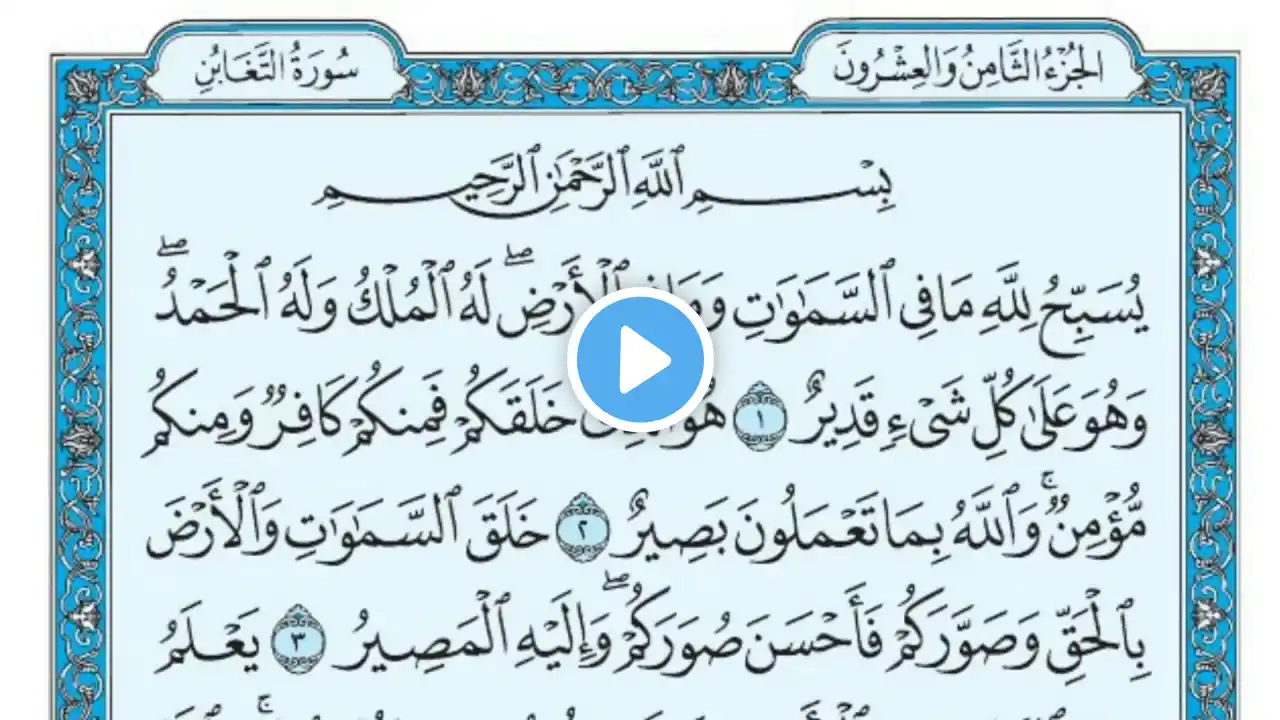 الجُزْءُ الثَّامِنُ وَالعِشْرُونَ
سُورَةُ التَّغَابُنِ
بِسْمِ ٱللَّهِ ٱلرَّحْمَٰنِ ٱلرَّحِيمِ
يُسَبِّحُ لِلَّهِ مَا فِى ٱلسَّمَٰوَٰتِ ٱلْأَرْضِۖ لَهُ ٱلْمُلْكُ وَلَهُ ٱلْحَمْدُۖ
وَهُوَ عَلَىٰ كُلِّ شَىْءٍ قَدِيرٌ ١ هُوَ خَلَقَكُمْ فَمِنكُمْ كَافِرٌ وَمِنكُم
مُّؤْمِنٌۚ وَٱللَّهُ بِمَا تَعْمَلُونَ بَصِيرٌ ٢ خَلَقَ ٱلسَّمَٰوَٰتِ وَٱلْأَرْضَ
بِٱلْحَقِّ وَصَوَّرَكُمْ فَأَحْسَنَ صُوَرَكُمْۖ وَإِلَيْهِ ٱلْمَصِيرُ ٣ يَعْلَمُ